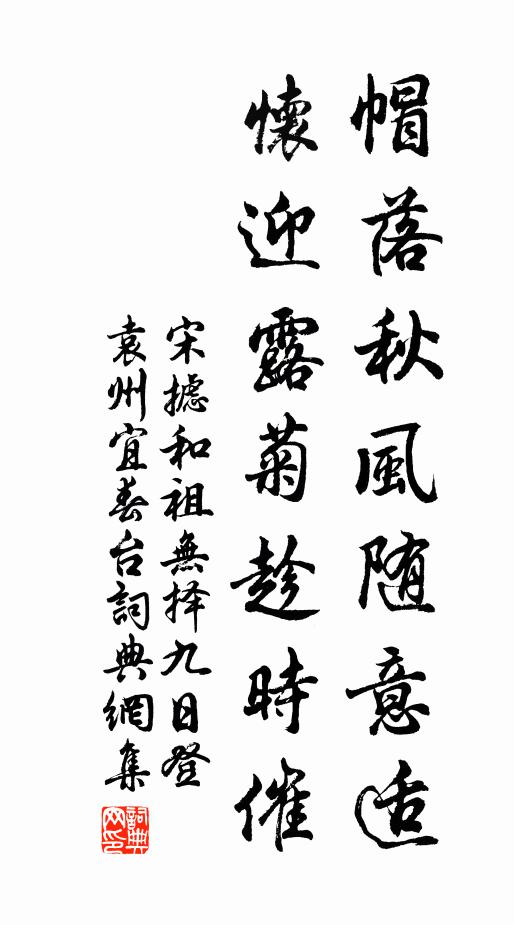 帽落秋風随意适
懷迎露菊趁時催
宋摅和祖無择九日登
袁州宜春台詞典網集
詞典
网印